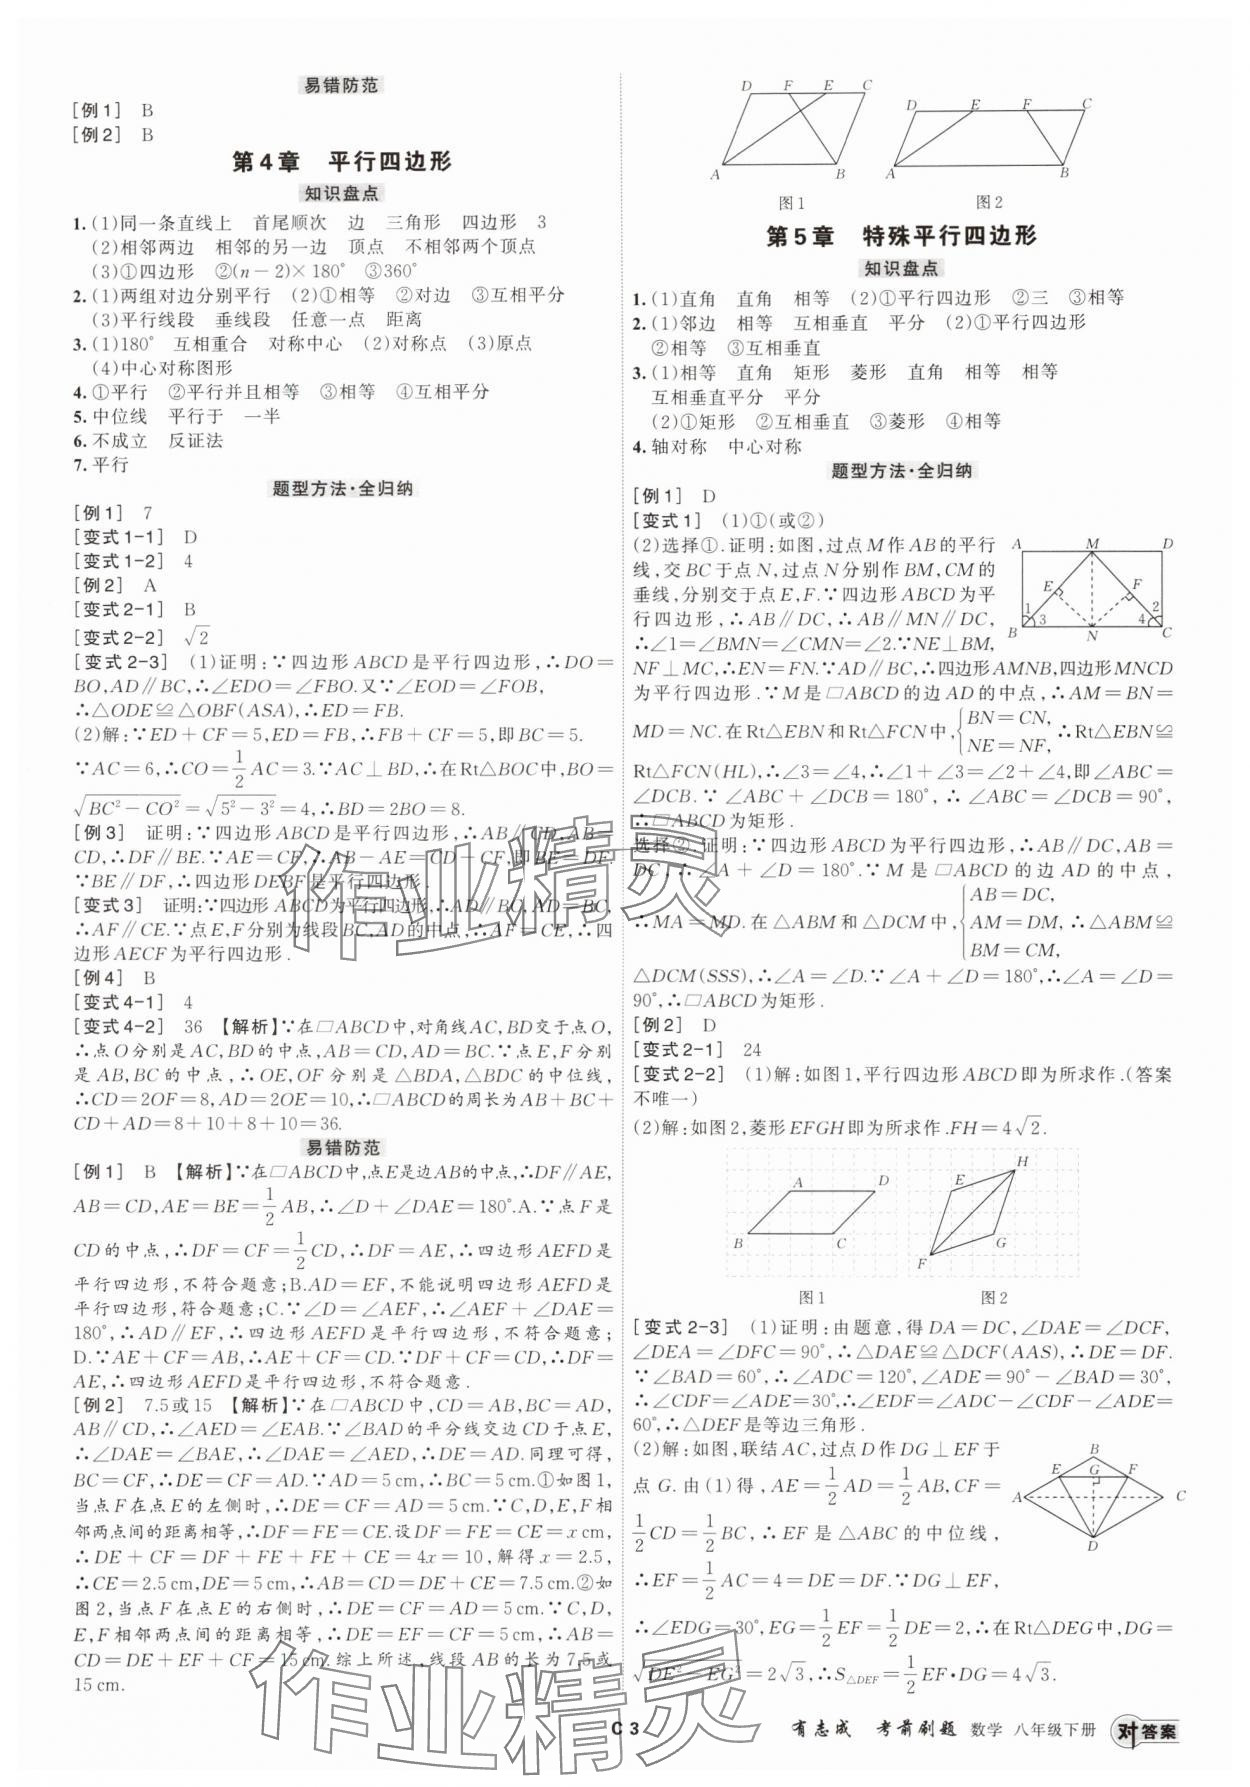 易错防范
[例1] B
[例2] B
第4章 平行四边形
知识盘点
1.(1)同一条直线上 首尾顺次 边 三角形 四边形 3
(2)相邻两边 相邻的另一边 顶点 不相邻两个顶点
(3)①四边形 ②(n-2)×180° ③360°
2.(1)两组对边分别平行 (2)①相等 ②对边 ③互相平分
(3)平行线段 垂线段 任意一点 距离
3.(1)180° 互相重合 对称中心 (2)对称点 (3)原点
(4)中心对称图形
4.①平行 ②平行并且相等 ③相等 ④互相平分
5.中位线 平行于 一半
6.不成立 反证法
7.平行
题型方法·全归纳
[例1] 7
[变式1-1] D
[变式1-2] 4
[例2] A
[变式2-1] B
[变式2-2] √2
[变式2-3] (1)证明:∵四边形ABCD是平行四边形,∴DO=
BO,AD∥BC,∴∠EDO=∠FBO.又∵∠EOD=∠FOB,
∴△ODE≌△OBF(ASA),∴ED=FB.
(2)解:∵ED+CF=5,ED=FB,∴FB+CF=5,即BC=5.
∵AC=6,∴CO=1/2AC=3.∵AC⊥BD,∴在Rt△BOC中,BO=
√(BC²-CO²)=√(5²-3²)=4,∴BD=2BO=8.
[例3] 证明:∵四边形ABCD是平行四边形,∴AB∥CD,AB=
CD,∴DF∥BE.∵AE=CF,∴AB-AE=CD-CF,即BE=DF.
∵BE∥DF,∴四边形DEBF是平行四边形.
[变式3] 证明:∵四边形ABCD为平行四边形,∴AD∥BC,AD=BC,
∴AF∥CE.∵点E,F分别为线段BC,AD的中点,∴AF=CE,∴四
边形AECF为平行四边形.
[例4] B
[变式4-1] 4
[变式4-2] 36 【解析】∵在□ABCD中,对角线AC,BD交于点O,
∴点O分别是AC,BD的中点,AB=CD,AD=BC.∵点E,F分别
是AB,BC的中点,∴OE,OF分别是△BDA,△BDC的中位线,
∴CD=2OF=8,AD=2OE=10,∴□ABCD的周长为AB+BC+
CD+AD=8+10+8+10=36.
易错防范
[例1] B 【解析】∵在□ABCD中,点E是边AB的中点,∴DF∥AE,
AB=CD,AE=BE=1/2AB,∴∠D+∠DAE=180°.A.∵点F是
CD的中点,∴DF=CF=1/2CD,∴DF=AE,∴四边形AEFD是
平行四边形,不符合题意;B.AD=EF,不能说明四边形AEFD是
平行四边形,符合题意;C.∵∠D=∠AEF,∴∠AEF+∠DAE=
180°,∴AD∥EF,∴四边形AEFD是平行四边形,不符合题意;
D.∵AE+CF=AB,∴AE+CF=CD.∵DF+CF=CD,∴DF=
AE,∴四边形AEFD是平行四边形,不符合题意.
[例2] 7.5或15 【解析】∵在□ABCD中,CD=AB,BC=AD,
AB∥CD,∴∠AED=∠EAB.∵∠BAD的平分线交边CD于点E,
∴∠DAE=∠BAE,∴∠DAE=∠AED,∴DE=AD.同理可得,
BC=CF,∴DE=CF=AD.∵AD=5cm,∴BC=5cm.①如图1,
当点F在点E的左侧时,∴DE=CF=AD=5cm.∵C,D,E,F相
邻两点间的距离相等,∴DF=FE=CE.设DF=FE=CE=xcm,
∴DE+CF=DF+FE+FE+CE=4x=10,解得x=2.5,
∴CE=2.5cm,DE=5cm,∴AB=CD=DE+CE=7.5cm.②如
图2,当点F在点E的右侧时,∴DE=CF=AD=5cm.∵C,D,
E,F相邻两点间的距离相等,∴DE=EF=CF=5cm,∴AB=
CD=DE+EF+CF=15cm.综上所述,线段AB的长为7.5或
15cm.
D F E C
A B
图1
D E F C
A B
图2
第5章 特殊平行四边形
知识盘点
1.(1)直角 直角 相等 (2)①平行四边形 ②三 ③相等
2.(1)邻边 相等 互相垂直 平分 (2)①平行四边形
②相等 ③互相垂直
3.(1)相等 直角 矩形 菱形 直角 相等 相等
互相垂直平分 平分
(2)①矩形 ②互相垂直 ③菱形 ④相等
4.轴对称 中心对称
题型方法·全归纳
[例1] D
[变式1] (1)①(或②)
(2)选择①.证明:如图,过点M作AB的平行
线,交BC于点N,过点N分别作BM,CM的
垂线,分别交于点E,F.∵四边形ABCD为平
行四边形,∴AB∥DC,∴AB∥MN∥DC,
∴∠1=∠BMN=∠CMN=∠2.∵NE⊥BM,
A M D
E F
1 3 4 2
B N C
NF⊥MC,∴EN=FN.∵AD∥BC,∴四边形AMNB,四边形MNCD
为平行四边形.∵M是□ABCD的边AD的中点,∴AM=BN=
MD=NC.在Rt△EBN和Rt△FCN中,{BN=CN, NE=NF,∴Rt△EBN≌
Rt△FCN(HL),∴∠3=∠4,∴∠1+∠3=∠2+∠4,即∠ABC=
∠DCB.∵∠ABC+∠DCB=180°,∴∠ABC=∠DCB=90°,
∴□ABCD为矩形.
选择②.证明:∵四边形ABCD为平行四边形,∴AB∥DC,AB=
DC,∴∠A+∠D=180°.∵M是□ABCD的边AD的中点,
∴MA=MD.在△ABM和△DCM中,{AB=DC, AM=DM, BM=CM,∴△ABM≌
△DCM(SSS),∴∠A=∠D.∵∠A+∠D=180°,∴∠A=∠D=
90°,∴□ABCD为矩形.
[例2] D
[变式2-1] 24
[变式2-2] (1)解:如图1,平行四边形ABCD即为所求作.(答案
不唯一)
(2)解:如图2,菱形EFGH即为所求作.FH=4√2.
A D
B C
图1
H
E
G
F
图2
[变式2-3] (1)证明:由题意,得DA=DC,∠DAE=∠DCF,
∠DEA=∠DFC=90°,∴△DAE≌△DCF(AAS),∴DE=DF.
∵∠BAD=60°,∴∠ADC=120°,∠ADE=90°-∠BAD=30°,
∴∠CDF=∠ADE=30°,∴∠EDF=∠ADC-∠CDF-∠ADE=
60°,∴△DEF是等边三角形.
(2)解:如图,联结AC,过点D作DG⊥EF于
点G.由(1)得,AE=1/2AD=1/2AB,CF=
1/2CD=1/2BC,∴EF是△ABC的中位线,
∴EF=1/2AC=4=DE=DF.∵DG⊥EF,
B
E G F
A C
D
∴∠EDG=30°,EG=1/2EF=1/2DE=2,∴在Rt△DEG中,DG=
√(DE²-EG²)=2√3,∴S△DEF=1/2EF·DG=4√3.
C 3 有志成 考前刷题 数学 八年级下册 对答案
作业精灵
作业精灵